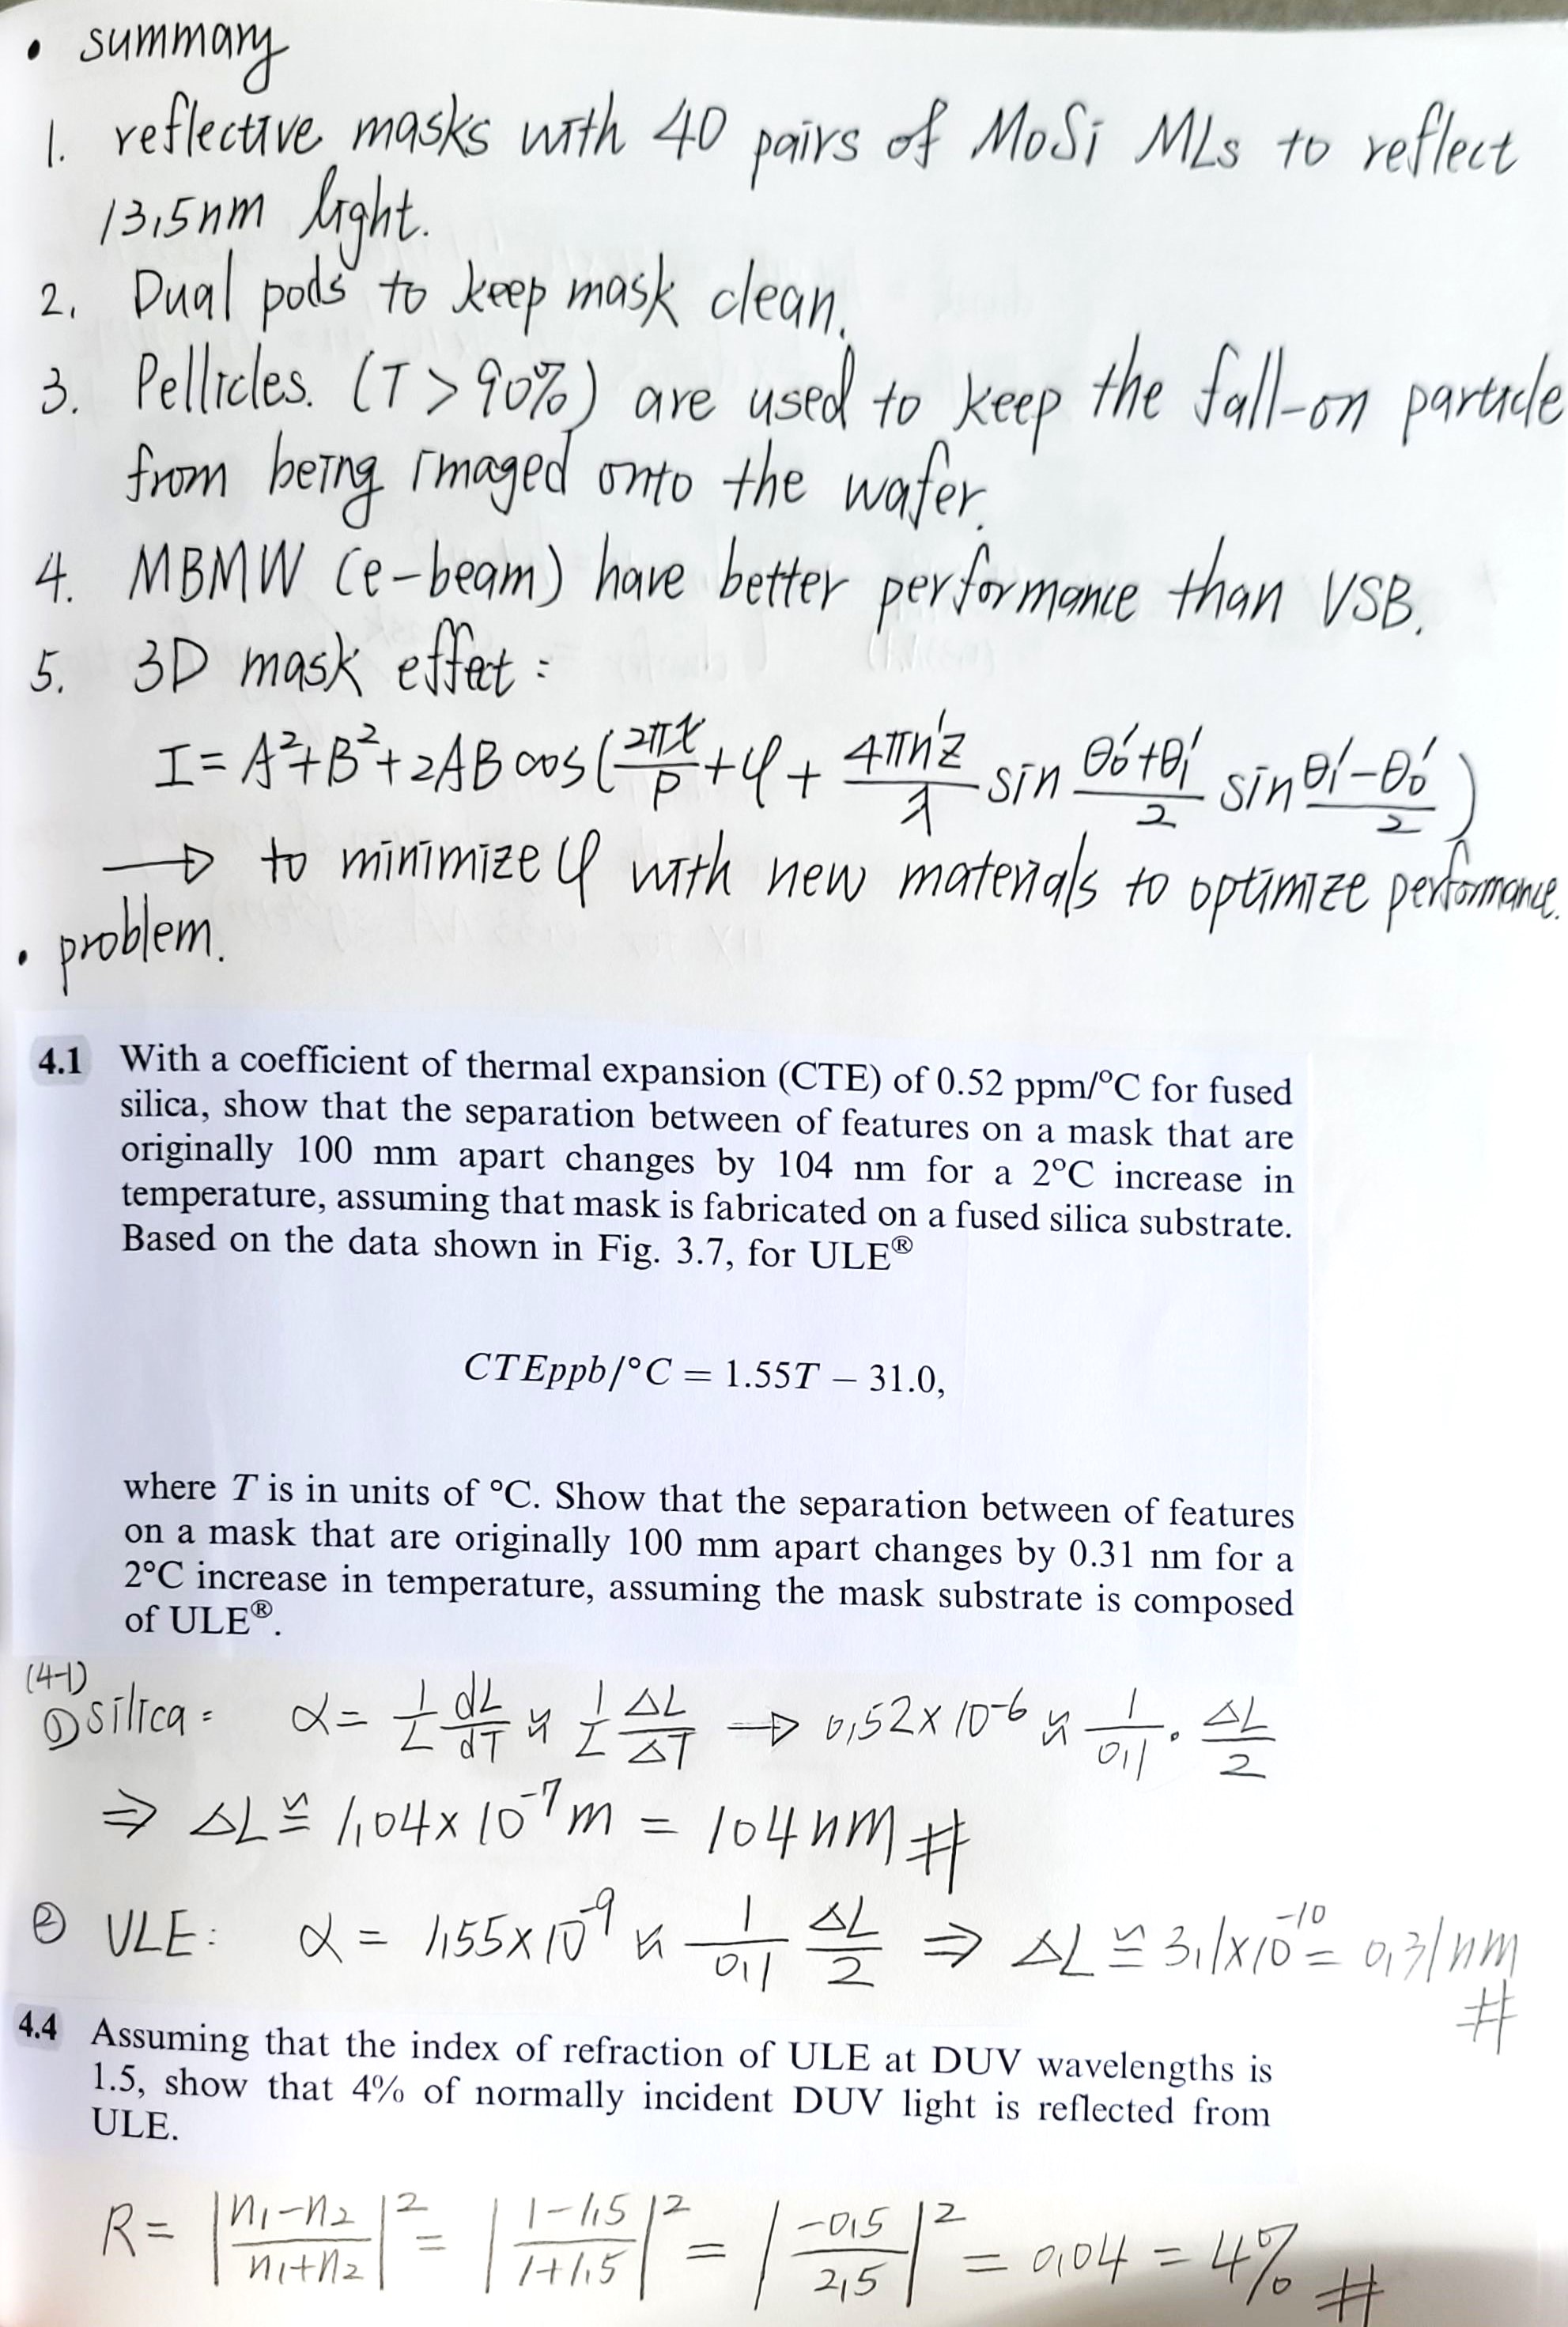 • summary
1. reflective masks with 40 pairs of MoSi MLs to reflect
13.5nm light.
2. Dual pods to keep mask clean.
3. Pellicles. (T > 90%) are used to keep the fall-on particle
from being imaged onto the wafer.
4. MBMW (e-beam) have better performance than VSB.
5. 3D mask effect:
I = A² + B² + 2AB cos(2πx/P + φ + 4πn'z/λ sin (θ₀'+θ₁')/2 sin (θ₁'-θ₀')/2)
→ to minimize φ with new materials to optimize performance.
• problem.
4.1 With a coefficient of thermal expansion (CTE) of 0.52 ppm/°C for fused
silica, show that the separation between of features on a mask that are
originally 100 mm apart changes by 104 nm for a 2°C increase in
temperature, assuming that mask is fabricated on a fused silica substrate.
Based on the data shown in Fig. 3.7, for ULE®
CTEppb/°C = 1.55T − 31.0,
where T is in units of °C. Show that the separation between of features
on a mask that are originally 100 mm apart changes by 0.31 nm for a
2°C increase in temperature, assuming the mask substrate is composed
of ULE®.
(4-1)
① silica: α = 1/L dL/dT ≈ 1/L ΔL/ΔT → 0.52×10⁻⁶ ≈ 1/0.1 · ΔL/2
⇒ ΔL ≅ 1.04×10⁻⁷m = 104nm #
② ULE: α = 1.55×10⁻⁹ ≈ 1/0.1 ΔL/2 ⇒ ΔL ≅ 3.1×10⁻¹⁰ = 0.31nm
#
4.4 Assuming that the index of refraction of ULE at DUV wavelengths is
1.5, show that 4% of normally incident DUV light is reflected from
ULE.
R = |n₁-n₂/n₁+n₂|² = |1-1.5/1+1.5|² = |-0.5/2.5|² = 0.04 = 4% #